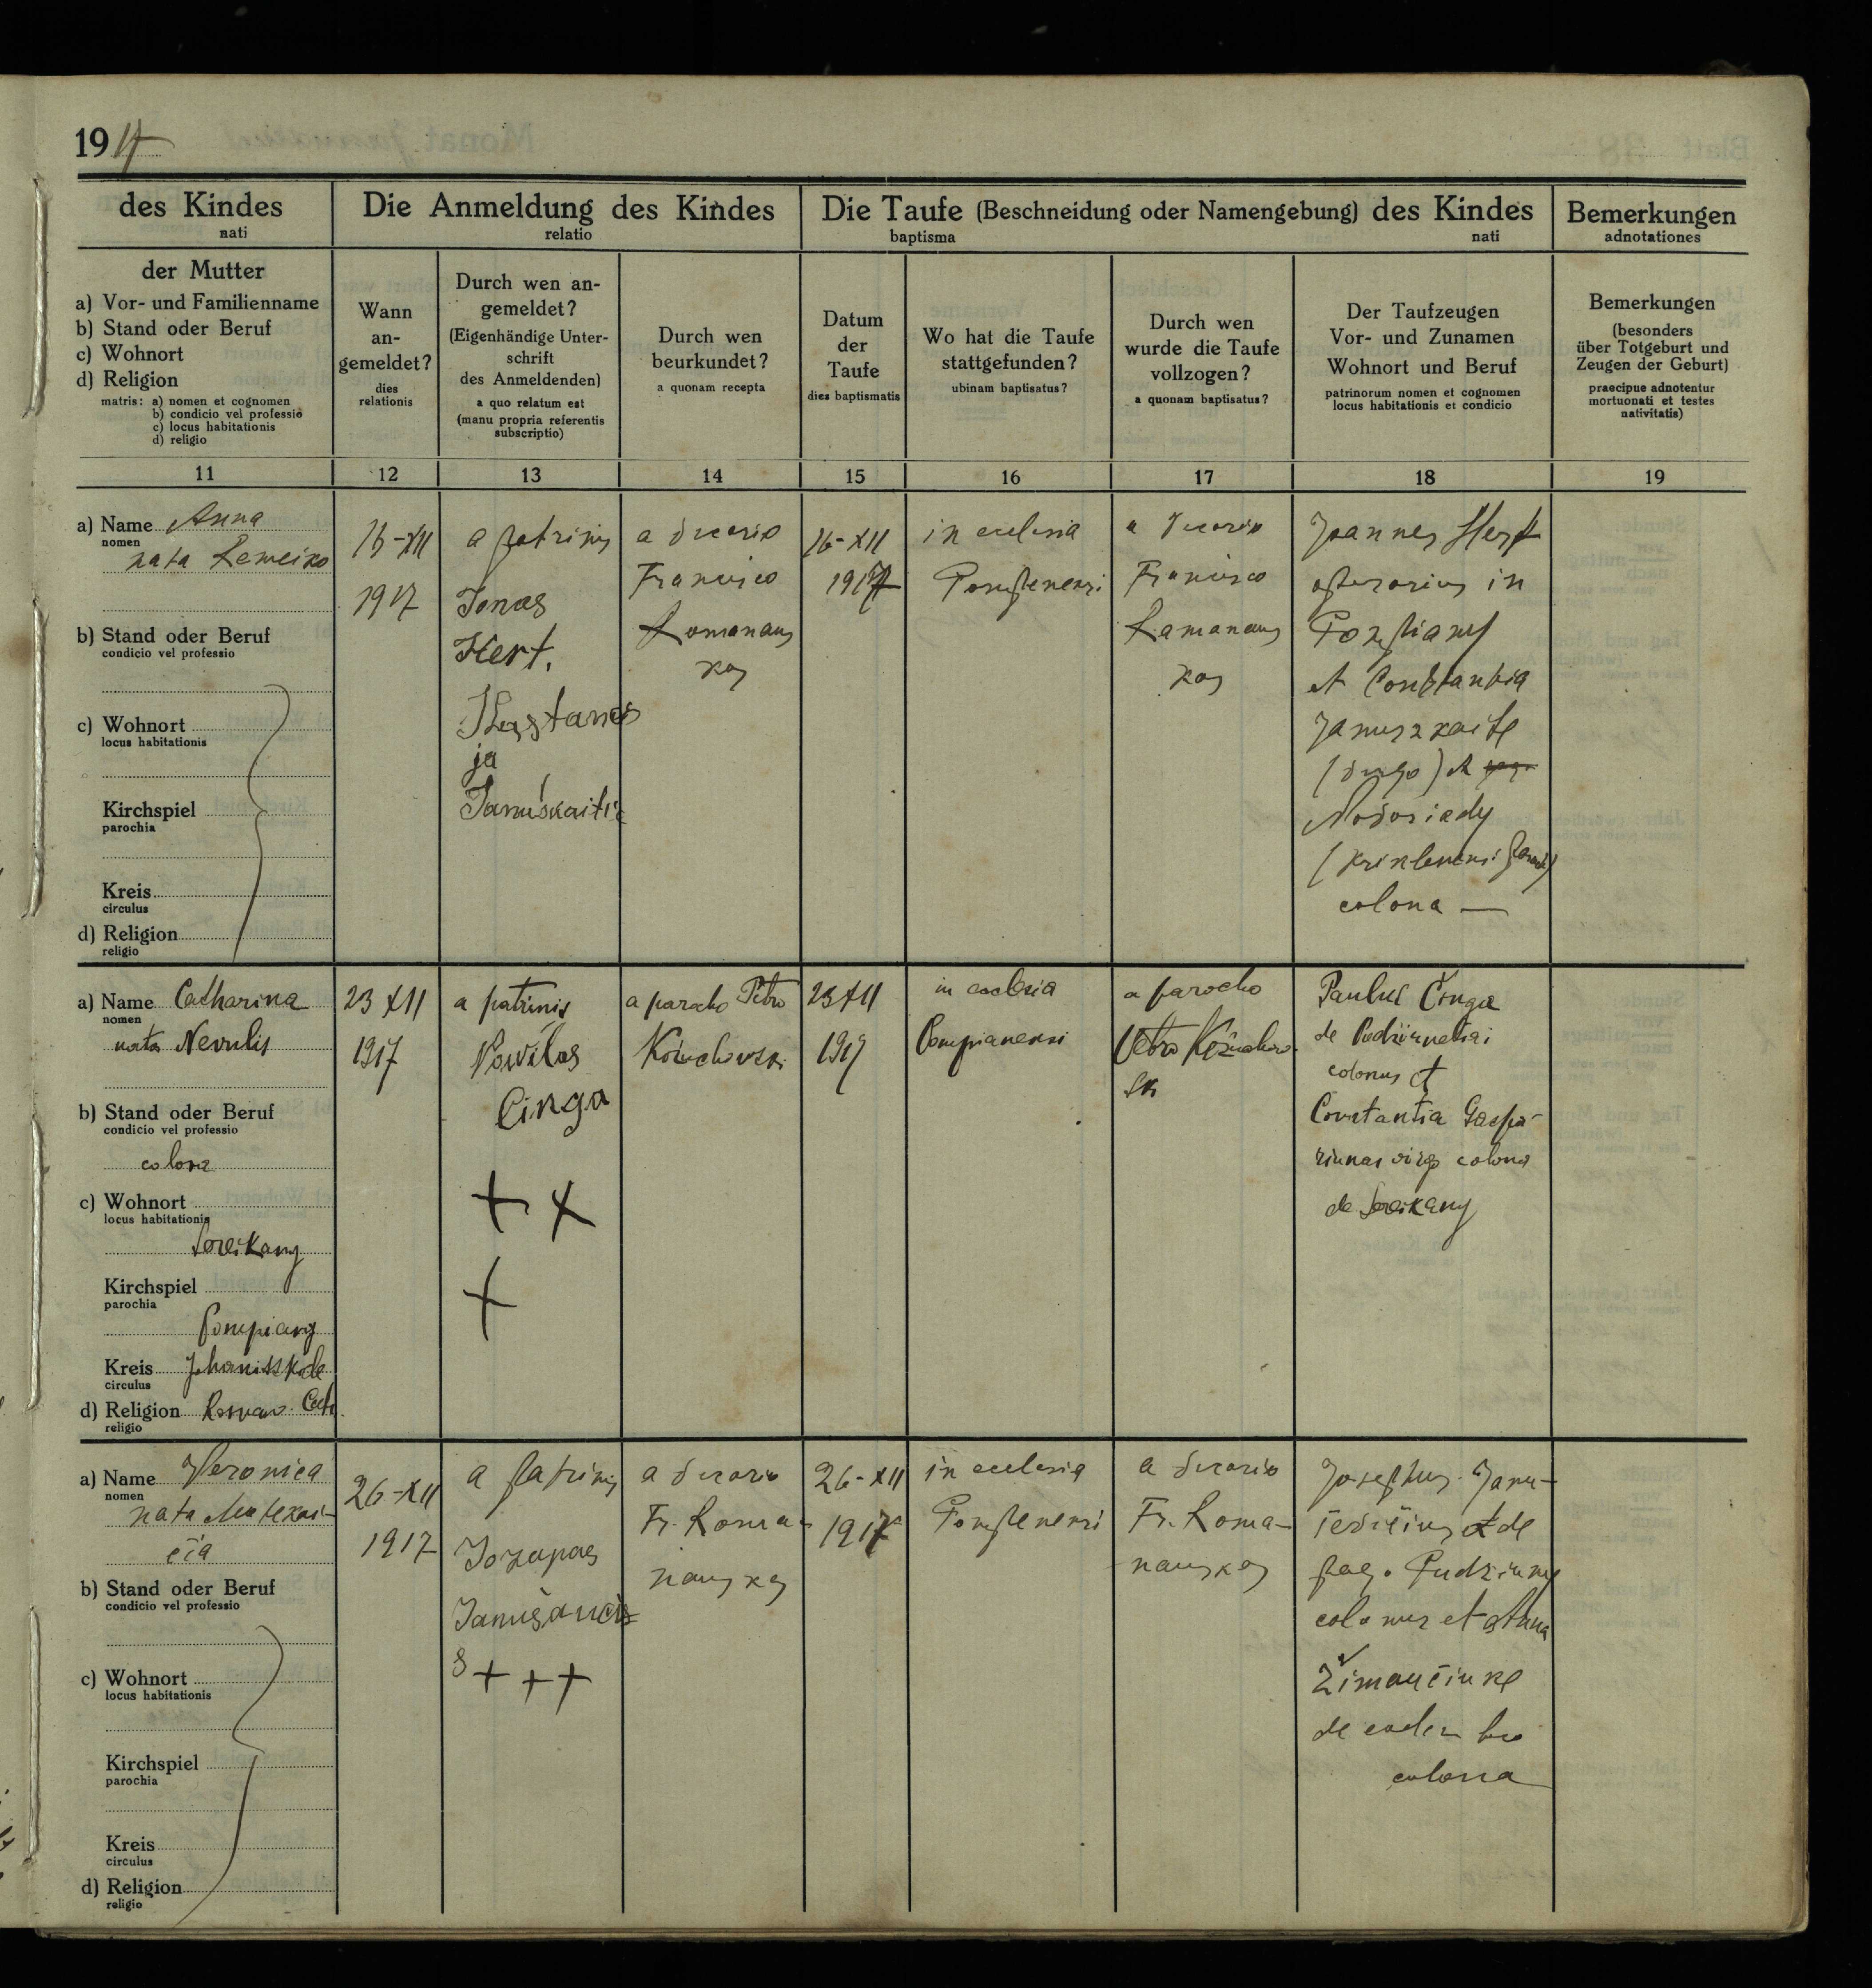 1917
des Kindes
nati
Die Anmeldung des Kindes
relatio
Die Taufe (Beschneidung oder Namengebung) des Kindes
baptisma nati
Bemerkungen
adnotationes
der Mutter
a) Vor- und Familienname
b) Stand oder Beruf
c) Wohnort
d) Religion
matris: a) nomen et cognomen
b) condicio vel professio
c) locus habitationis
d) religio
Wann
an-
gemeldet?
dies
relationis
Durch wen an-
gemeldet?
(Eigenhändige Unter-
schrift
des Anmeldenden)
a quo relatum est
(manu propria referentis
subscriptio)
Durch wen
beurkundet?
a quonam recepta
Datum
der
Taufe
dies baptismatis
Wo hat die Taufe
stattgefunden?
ubinam baptisatus?
Durch wen
wurde die Taufe
vollzogen?
a quonam baptisatus?
Der Taufzeugen
Vor- und Zunamen
Wohnort und Beruf
patrinorum nomen et cognomen
locus habitationis et condicio
Bemerkungen
(besonders
über Totgeburt und
Zeugen der Geburt)
praecipue adnotentur
mortuonati et testes
nativitatis)
11 12 13 14 15 16 17 18 19
a) Name Anna
nomen
nata
b) Stand oder Beruf
condicio vel professio
c) Wohnort
locus habitationis
Kirchspiel
parochia
Kreis
circulus
d) Religion
religio
16-XII
1917
a patrinis
Jonas
Hert.
ja
a vicario
Francisco
Romanaus
kas
16-XII
1917
in ecclesia
a vicario
Francisco
Ramanaus
kas
Joannes Hert
in
et Constantia
(virgo) et
colona
a) Name Catharina
nomen
nata Nevulis
b) Stand oder Beruf
condicio vel professio
colona
c) Wohnort
locus habitationis
Kirchspiel
parochia
Pompiany
Kreis
circulus
d) Religion Roman. Cath.
religio
23 XII
1917
a patrinis
Povilas
Činga
+ +
+
a parocho Petro
23 XII
1917
in ecclesia
Pompianensi
a parocho
Petro
Paulus Činga
de
colonus et
Constantia Gaspa-
riunas virgo colona
de
a) Name Veronica
nomen
nata
b) Stand oder Beruf
condicio vel professio
c) Wohnort
locus habitationis
Kirchspiel
parochia
Kreis
circulus
d) Religion
religio
26-XII
1917
a patrinis
Jozapas
s + + +
a vicario
Fr. Roma-
nauskas
26-XII
1917
in ecclesia
a vicario
Fr. Roma-
nauskas
Josephus Janu-
de
pag. Pudziuny
colonus et Anna
de eodem loco
colona